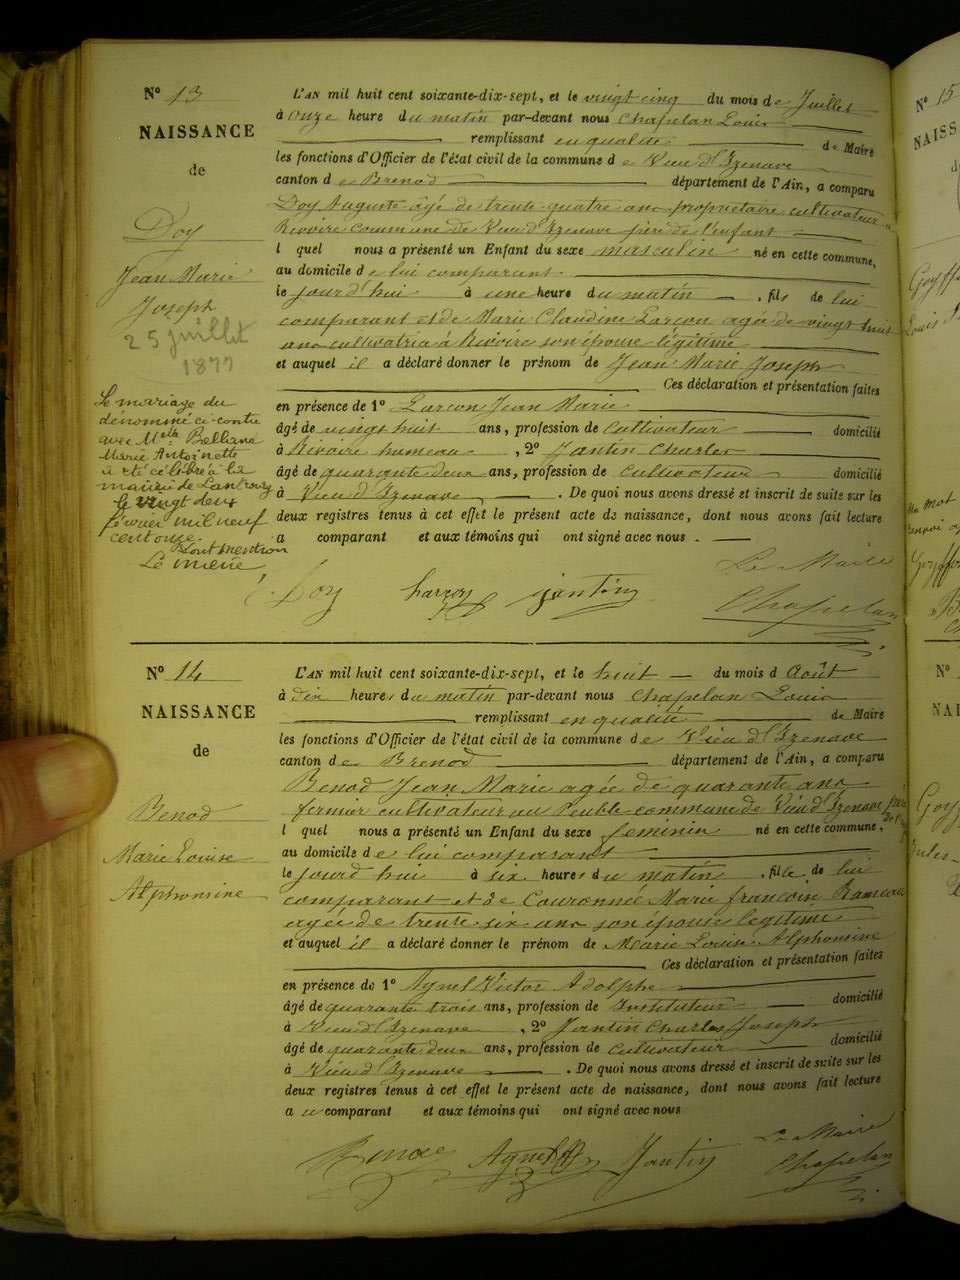 N° 13
NAISSANCE
de
Doy
Jean Marie
Joseph
25 juillet
1877
Le mariage du
dénommé ci-contre
avec Melle Balland
Marie Antoinette
a été célébré à la
mairie de
le vingt deux
février mil neuf
cent onze
Dont mention
Le maire
L'AN mil huit cent soixante-dix-sept, et le vingt cinq du mois de Juillet
à onze heure du matin par-devant nous Chapelan Louis
remplissant en qualité de Maire
les fonctions d'Officier de l'état civil de la commune de Vieu d'Izenave
canton de Brenod département de l'Ain, a comparu
Doy Auguste âgé de trente quatre ans propriétaire cultivateur à
Rivoire commune de Vieu d'Izenave père de l'enfant
l quel nous a présenté un Enfant du sexe masculin né en cette commune,
au domicile de lui comparant
le jourd'hui à une heure du matin , fils de lui
comparant et de Marie Claudine Larçon agée de vingt huit
ans cultivatrice à Rivoire son épouse légitime
et auquel il a déclaré donner le prénom de Jean Marie Joseph
Ces déclaration et présentation faites
en présence de 1° Larçon Jean Marie
âgé de vingt huit ans, profession de cultivateur domicilié
à Rivoire hameau , 2° Jantin Charles
âgé de quarante deux ans, profession de cultivateur domicilié
à Vieu d'Izenave . De quoi nous avons dressé et inscrit de suite sur les
deux registres tenus à cet effet le présent acte de naissance, dont nous avons fait lecture
a comparant et aux témoins qui ont signé avec nous .
Le Maire
Doy Larçon Jantin Chapelan
N° 14
NAISSANCE
de
Benod
Marie Louise
Alphonsine
L'AN mil huit cent soixante-dix-sept, et le huit du mois d Août
à dix heures du matin par-devant nous Chapelan Louis
remplissant en qualité de Maire
les fonctions d'Officier de l'état civil de la commune de Vieu d'Izenave
canton de Brenod département de l'Ain, a comparu
Benod Jean Marie agée de quarante ans
fermier cultivateur au commune de Vieu d'Izenave père de l'enfant
l quel nous a présenté un Enfant du sexe féminin né en cette commune,
au domicile de lui comparant
le jourd'hui à six heures du matin , fille de lui
comparant et de Couronnée Marie françoise Rameau
agée de trente six ans son épouse légitime
et auquel il a déclaré donner le prénom de Marie Louise Alphonsine
Ces déclaration et présentation faites
en présence de 1° Aynel Victor Adolphe
âgé de quarante trois ans, profession de Instituteur domicilié
à Vieu d'Izenave , 2° Jantin Charles Joseph
âgé de quarante deux ans, profession de cultivateur domicilié
à Vieu d'Izenave . De quoi nous avons dressé et inscrit de suite sur les
deux registres tenus à cet effet le présent acte de naissance, dont nous avons fait lecture
a u comparant et aux témoins qui ont signé avec nous
Le Maire
Benod Aynel Jantin Chapelan
N° 15
NAISS
Louis